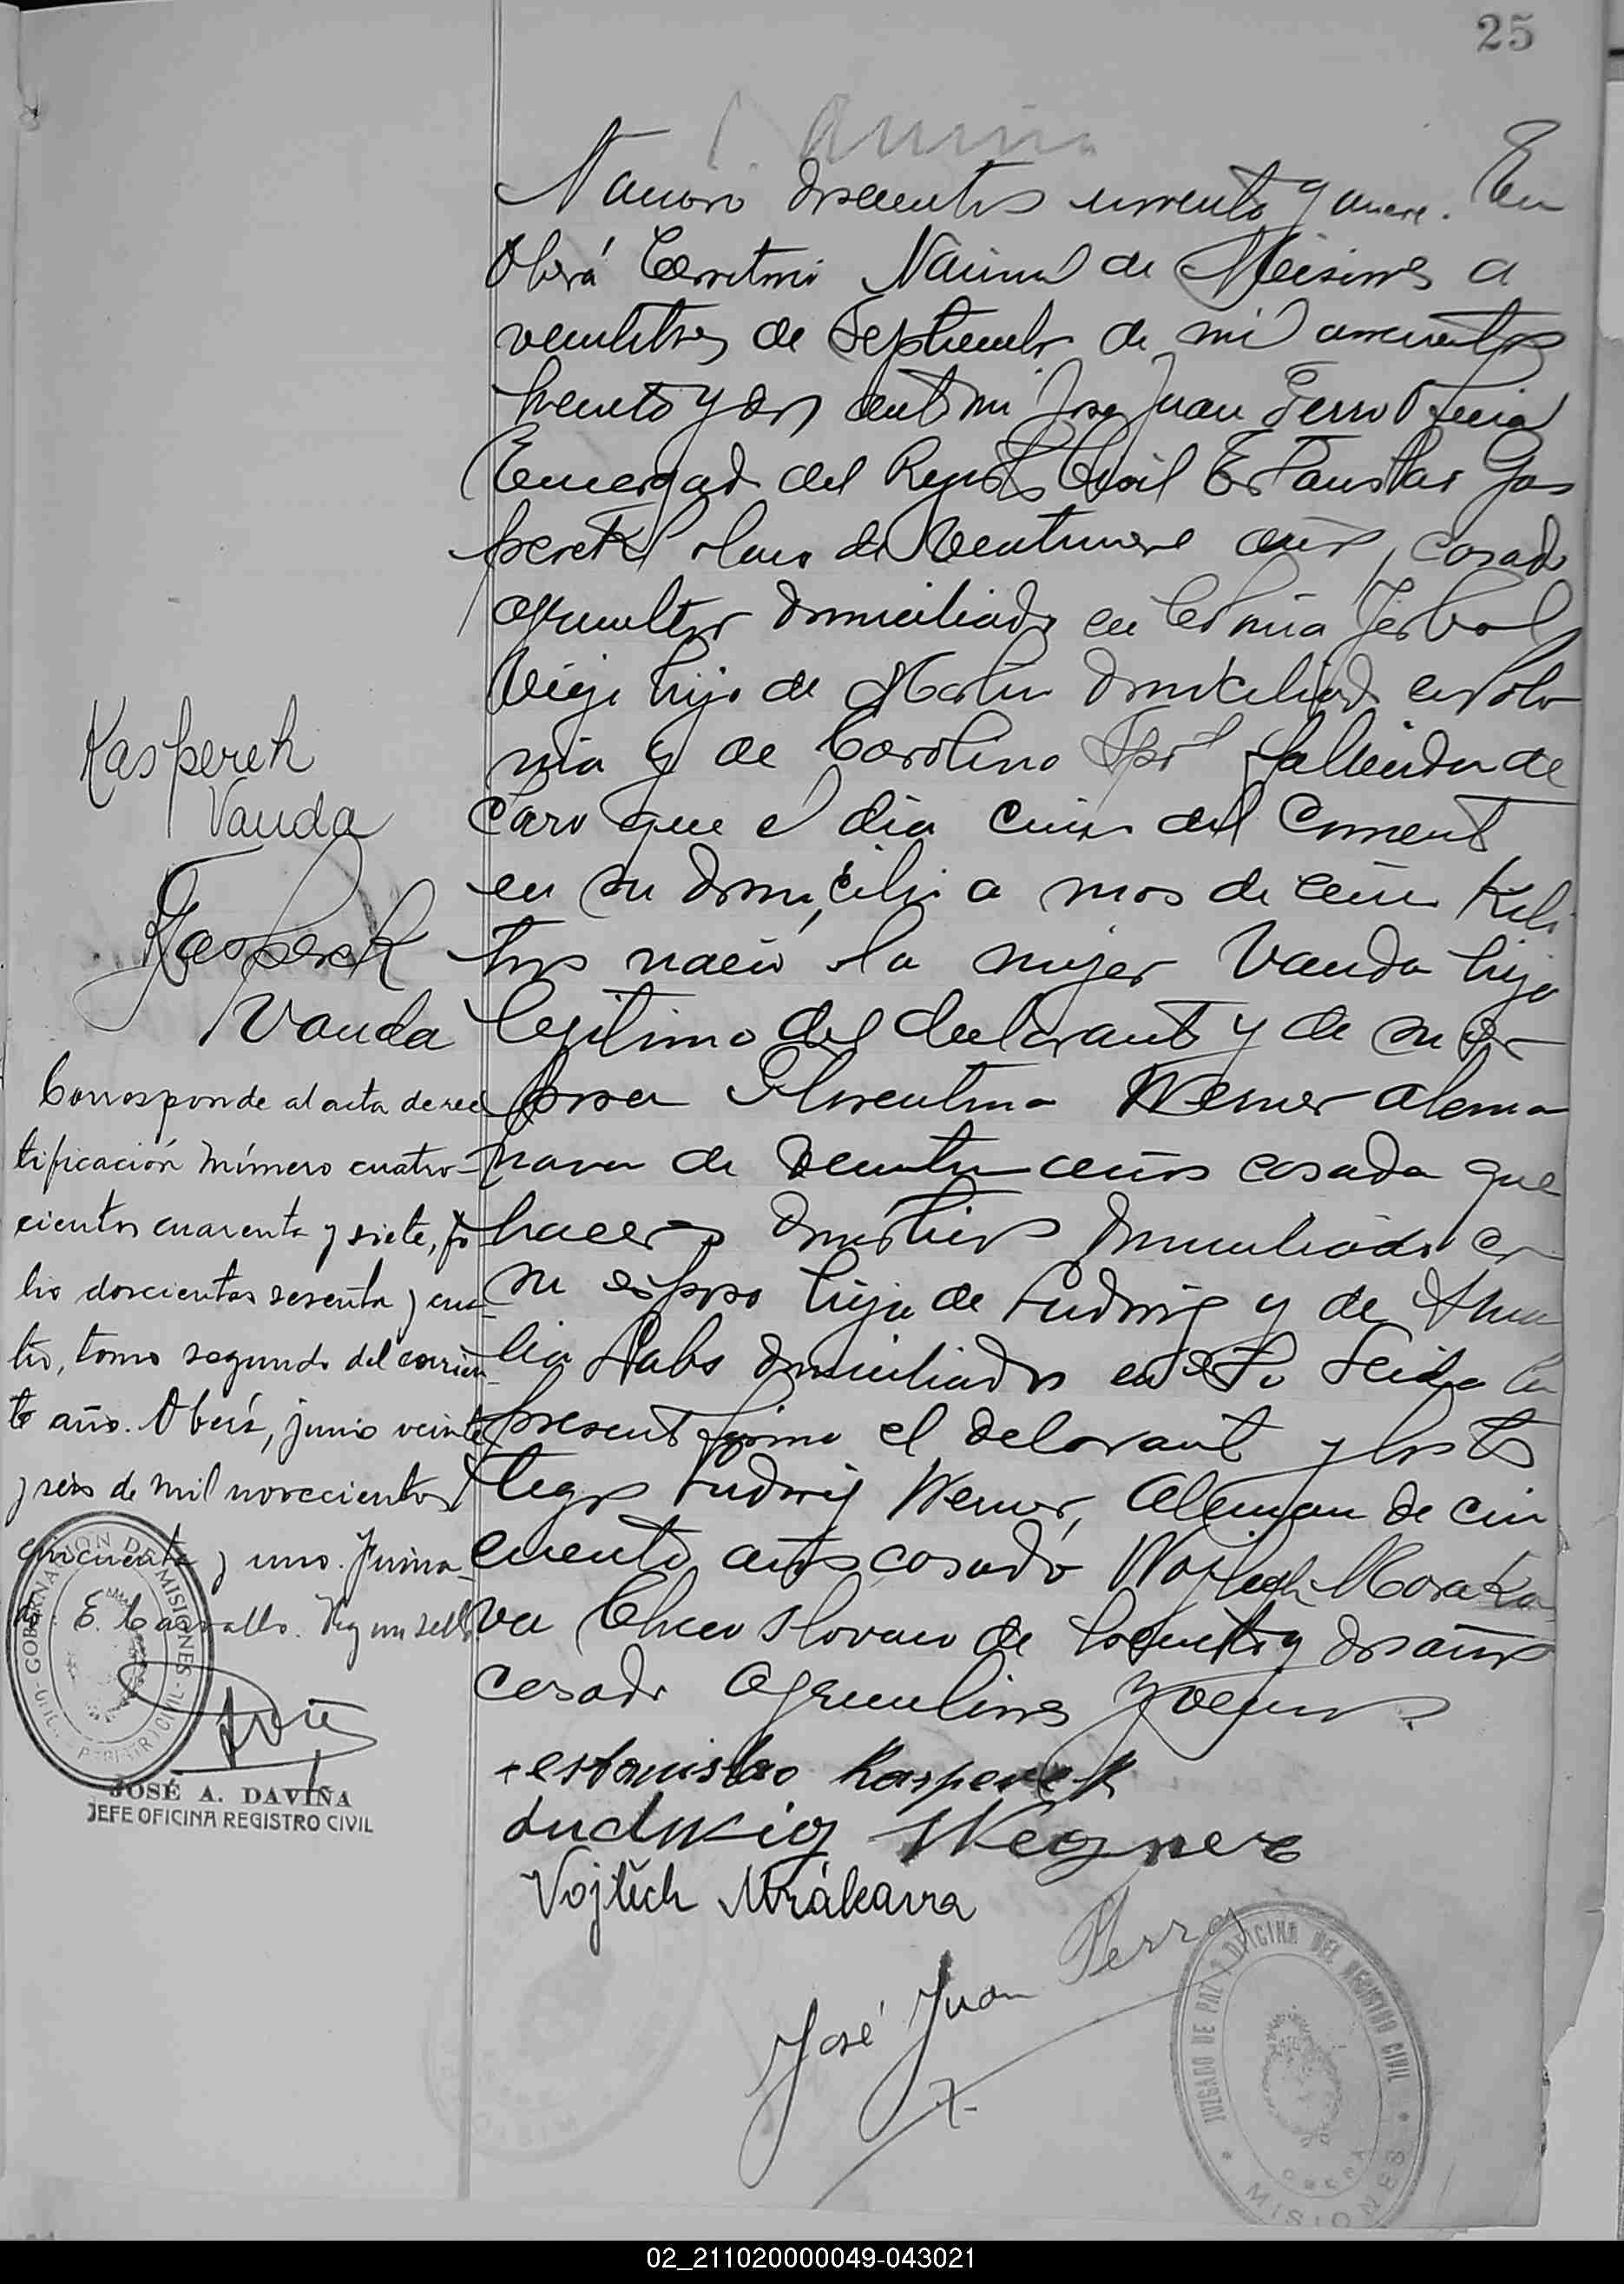 25
Numero doscientos noventa y nueve. En
Oberá Territorio Nacional de Misiones a
veintitres de Septiembre de mil novecientos
treinta y dos ante mi Jose Juan Ferro Oficial
Encargado del Registro Civil Estanislao Gas
perek polaco de veintinueve años, casado
agricultor domiciliado en Colonia Yerbal
Viejo hijo de Martin domiciliado en Polo
nia y de Carolina fallecida de
claro que el dia cinco del corriente
en su domicilio a mas de cinco Kilo
tros nacio la mujer Vanda hija
legitima del declarante y de su es
posa Florentina Werner alema
na de años casada que
haceres domesticos domiciliada en
su esposo hija de Ludwig y de Ama
lia Rabs domiciliados en Leida la
presente firma el declarante y los tes
tigos Ludwig Werner, Aleman de cin
cuenta años casado Wojtech Moraka
va Checo Slovaco de y dos años
casado agricultores y vecinos.
estanislao Kasperek
Ludwig Wegner
Vojtěch Mrákava
José Juan Ferro
Kasperek
Vanda
Kasperek
Vanda
Corresponde al acta de rec
tificación número cuatro-
cientos cuarenta y siete, fo
lio doscientos sesenta y cua-
tro, tomo segundo del corrien-
te año. Oberá, junio veinte
y seis de mil novecientos
cincuenta y uno. Firma-
do: E. Carvallo. Hay un sello.
GOBERNACION DE MISIONES
JOSÉ A. DAVIÑA
JEFE OFICINA REGISTRO CIVIL
JUZGADO DE PAZ Y OFICINA DEL REGISTRO CIVIL
OBERA
MISIONES
02_211020000049-043021